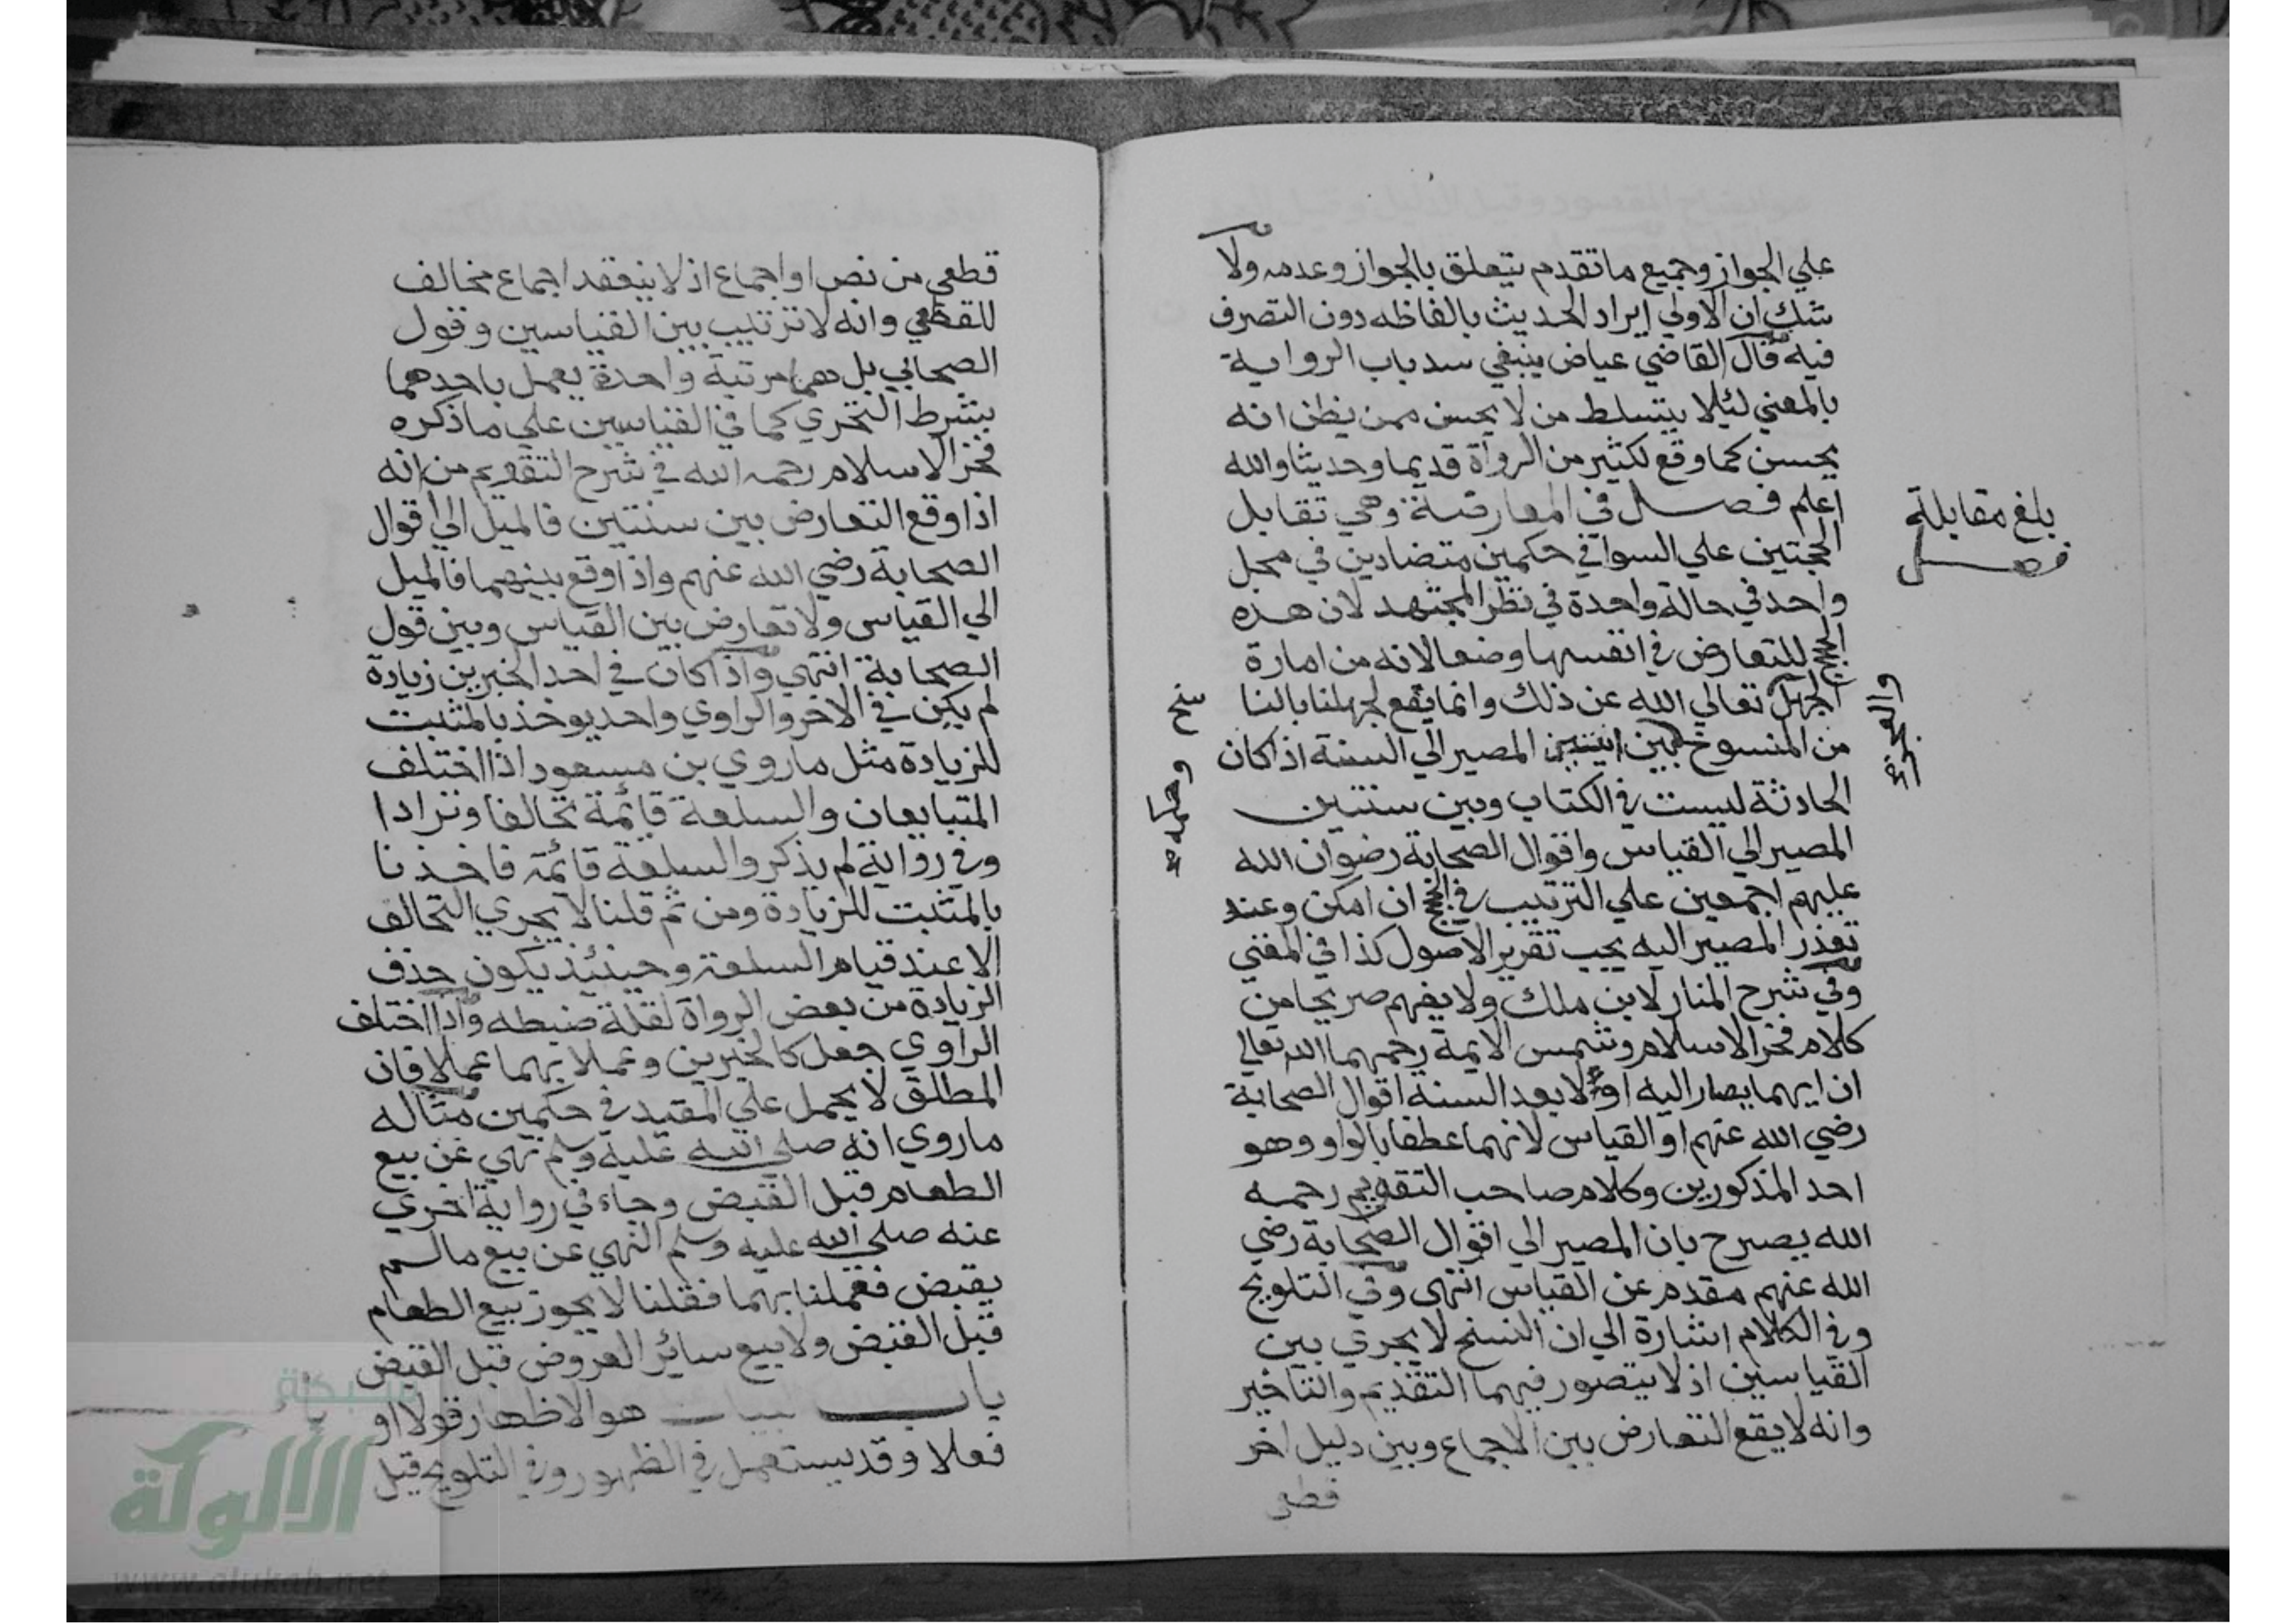 علي الجواز وجميع ما تقدم يتعلق بالجواز وعدمه ولا
شك ان الاولي ايراد الحديث بالفاظه دون التصرف
فيه قال القاضي عياض ينبغي سد باب الرواية
بالمعني لئلا يتسلط من لا يحسن ممن يظن انه
يحسن كما وقع لكثير من الرواة قديما وحديثا والله
اعلم فصل في المعارضة وهي تقابل
الحجتين علي السوا في حكمين متضادين في محل
واحد في حالة واحدة في نظر المجتهد لان هذه
الحجج للتعارض في انفسها وضعا لانه من امارة
الجهل تعالي الله عن ذلك وانما يقع لجهلنا بالنا
من المنسوخ اثنتين المصير الي السنة اذا كان
الحادثة ليست في الكتاب وبين سنتين
المصير الي القياس واقوال الصحابة رضوان الله
عليهم اجمعين علي الترتيب في الحجج ان امكن وعند
تعذر المصير اليه يجب تقرير الاصول كذا في المغني
وفي شرح المنار لابن ملك ولا يفهم صريحا من
كلام فخر الاسلام وشمس الايمة رحمهما الله تعالي
ان ايهما يصار اليه اولا بعد السنة اقوال الصحابة
رضي الله عنهم او القياس لانهما عطفا بالواو وهو
احد المذكورين وكلام صاحب التقويم رحمه
الله يصرح بان المصير الي اقوال الصحابة رضي
الله عنهم مقدم عن القياس انتهى وفي التلويح
وفي الكلام اشارة الي ان النسخ لا يجري بين
القياسين اذ لا يتصور فيهما التقديم والتاخير
وانه لا يقع التعارض بين الاجماع وبين دليل اخر
قطعي
بلغ مقابلة
فصل
سخ
قطعي من نص او اجماع اذ لا ينعقد اجماع مخالف
للقطعي وانه لا ترتيب بين القياسين وقول
الصحابي بل هما مرتبة واحدة يعمل باحدهما
بشرط التحري كما في القياسين علي ما ذكره
فخر الاسلام رحمه الله في شرح التقويم من انه
اذا وقع التعارض بين سنتين فالميل الي اقوال
الصحابة رضي الله عنهم واذا وقع بينهما فالميل
الي القياس ولا تعارض بين القياس وبين قول
الصحابة انتهي واذا كان في احد الخبرين زيادة
لم يكن في الاخر والراوي واحد يوخذ بالمثبت
للزيادة مثل ما روي بن مسعود اذا اختلف
المتبايعان والسلعة قائمة تحالفا وترادا
وفي رواية لم يذكر والسلعة قائمة فاخذنا
بالمثبت للزيادة ومن ثم قلنا لا يجري التحالف
الا عند قيام السلعة وحينئذ يكون حذف
الزيادة من بعض الرواة لقلة ضبطه واذا اختلف
الراوي جعل كالخبرين وعملا بهما عملا فان
المطلق لا يحمل علي المقيد في حكمين مثاله
ما روي انه صلى الله عليه وسلم نهي عن بيع
الطعام قبل القبض وجاء في رواية اخري
عنه صلى الله عليه وسلم النهي عن بيع ما لم
يقبض فعملنا بهما فقلنا لا يجوز بيع الطعام
قبل القبض ولا بيع سائر العروض قبل القبض
باب البيان هو الاظهار قولا او
فعلا وقد يستعمل في الظهور وفي التلويح قيل
شبكة
الألوكة
www.alukah.net